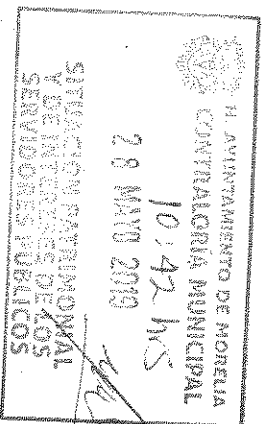 H. AYUNTAMIENTO DE MORELIA
CONTRALORÍA MUNICIPAL
10:42 hrs
28 MAYO 2019
SITUACIÓN PATRIMONIAL
Y DE INTERESES DE LOS
SERVIDORES PÚBLICOS